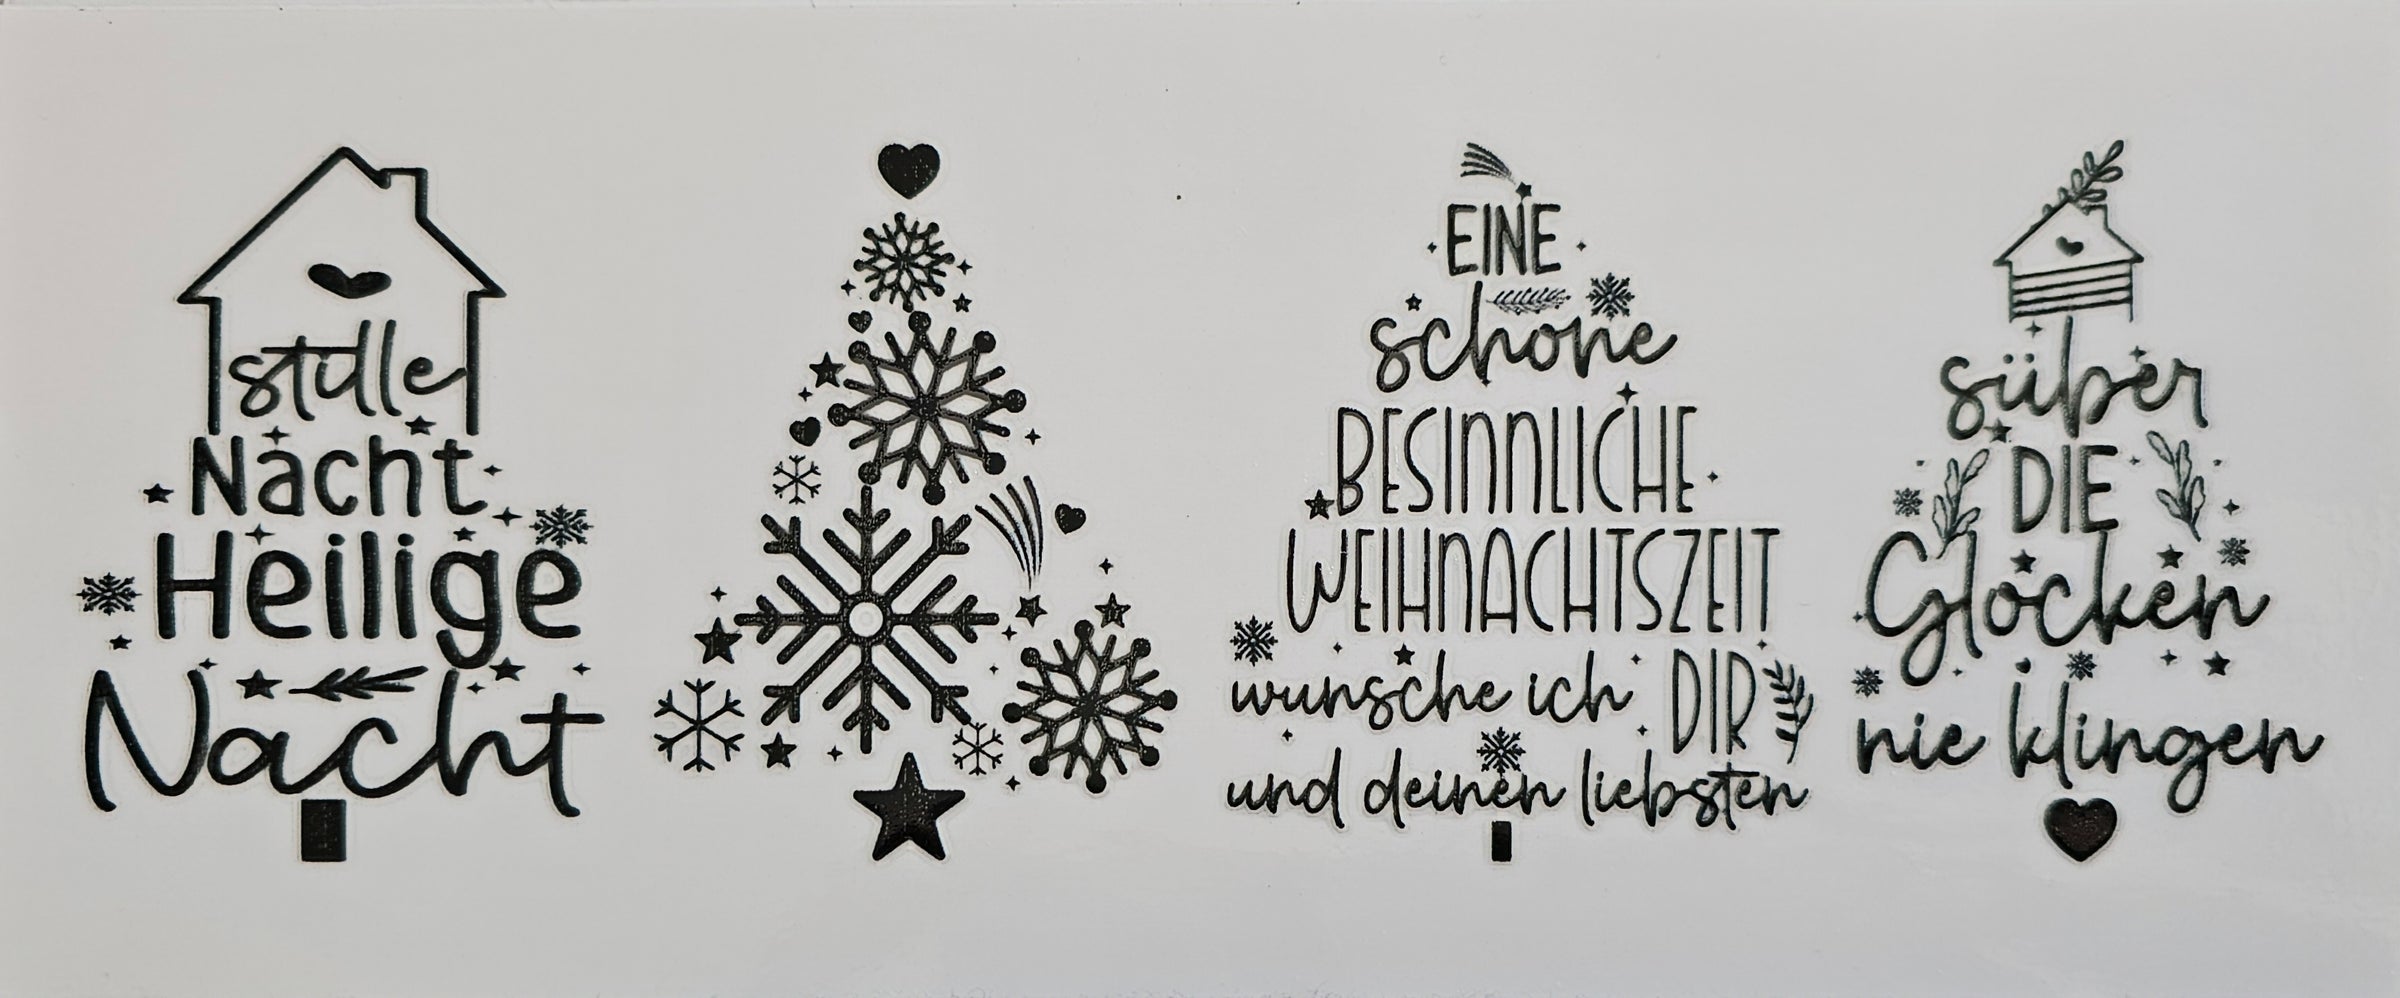 stille
Nacht
Heilige
Nacht
EINE
schone
BESINNLICHE
WEIHNACHTSZEIT
wunsche ich DIR
und deinen liebsten
süßer
DIE
Glocken
nie klingen